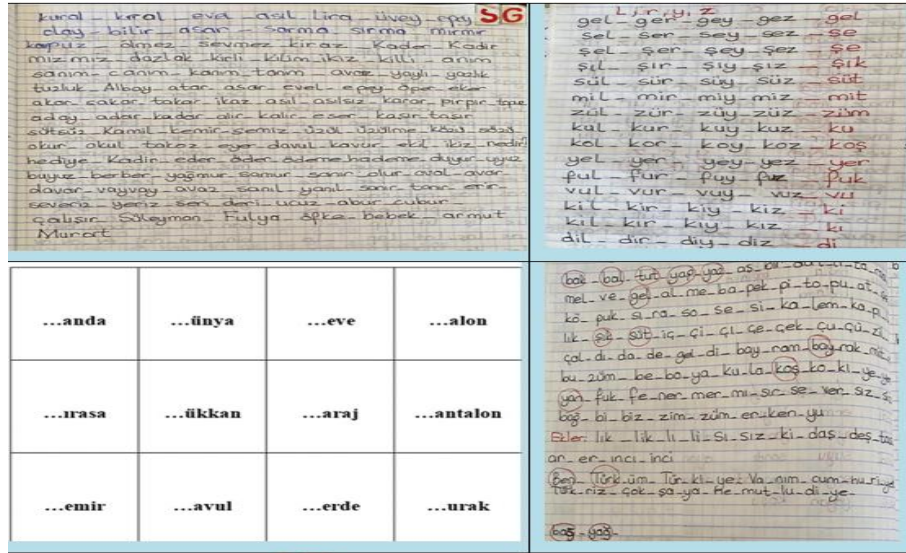 kural - kıral - evet - asıl - Lira - üvey - epey SG
olay - bilir - asar - sarma - sırma - mırmır
karpuz - ölmez - sevmez - kiraz - Kader - Kadir
mızmız - dazlak - kirli - kilim - ikiz - killi - anım
sanım - canım - karım - tanım - avaz - yaylı - yazlık
tuzluk - Albay - atar - asar - evel - epey - öper - eker
akar - sakar - takar - ikaz - asıl - asılsız - karar - pırpır
aday - adar - kadar - alır - kalır - eser - kasır - tasır
sütsüz - Kamil - kemir - semiz - üzül - üzülme
okur - okul - takoz - eyer - davul - kavur - ekil - ikiz - nedir
hediye - Kadir - eder - öder - ödeme - hademe - duyur - uyuz
buyuz - berber - yağmur - samur - sanır - olur - aval - avar
davar - vayvay - avaz - sanıl - yanıl - sanır - tanır - erir
severiz - yeriz - seri - deri - ucuz - abur - cubur
çalışır - Süleyman - Fulya - öfke - bebek - armut
Murat
L, r, y, z
gel - ger - gey - gez - gel
sel - ser - sey - sez - se
şel - şer - şey - şez - şe
şıl - şır - şıy - şız - şık
sül - sür - süy - süz - süt
mil - mir - miy - miz - mit
zül - zür - züy - züz - züm
kul - kur - kuy - kuz - ku
kol - kor - koy - koz - koş
yel - yer - yey - yez - yer
pul - pur - puy - puz - puk
vul - vur - vuy - vuz - vu
kil - kir - kiy - kiz - ki
kıl - kır - kıy - kız - kı
dil - dir - diy - diz - di
...anda ...ünya ...eve ...alon
...ırasa ...ükkan ...araj ...antalon
...emir ...avul ...erde ...urak
bak - bal - tut - yap - yaz - as
mel - ve - gel - al - me - ba - pek - pi - to - pu - at
kö - puk - sı - ra - so - se - si - ka - lem - ka - p
lık - şık - süt - iç - çi - çı - çe - çek - çu - çü - zı
çal - dı - da - de - gel - di - bay - ram - bay - rak
bu - züm - be - bo - ya - ku - la - koş - ko - kı - ye
yan - fuk - fe - ner - mer - mı - sır - se - ver - siz
bağ - bi - biz - zim - züm - er - ken - yu
Ekler: lık - lik - lı - li - sı - sız - ki - daş - deş
ar - er - ıncı - inci
Ben - Türk - üm - Tür - ki - ye - Va - nım - cum - hu - ri - ye
Tür - niz - çok - şa - ya - Ne - mut - lu - di - ye -
baş - yağ -